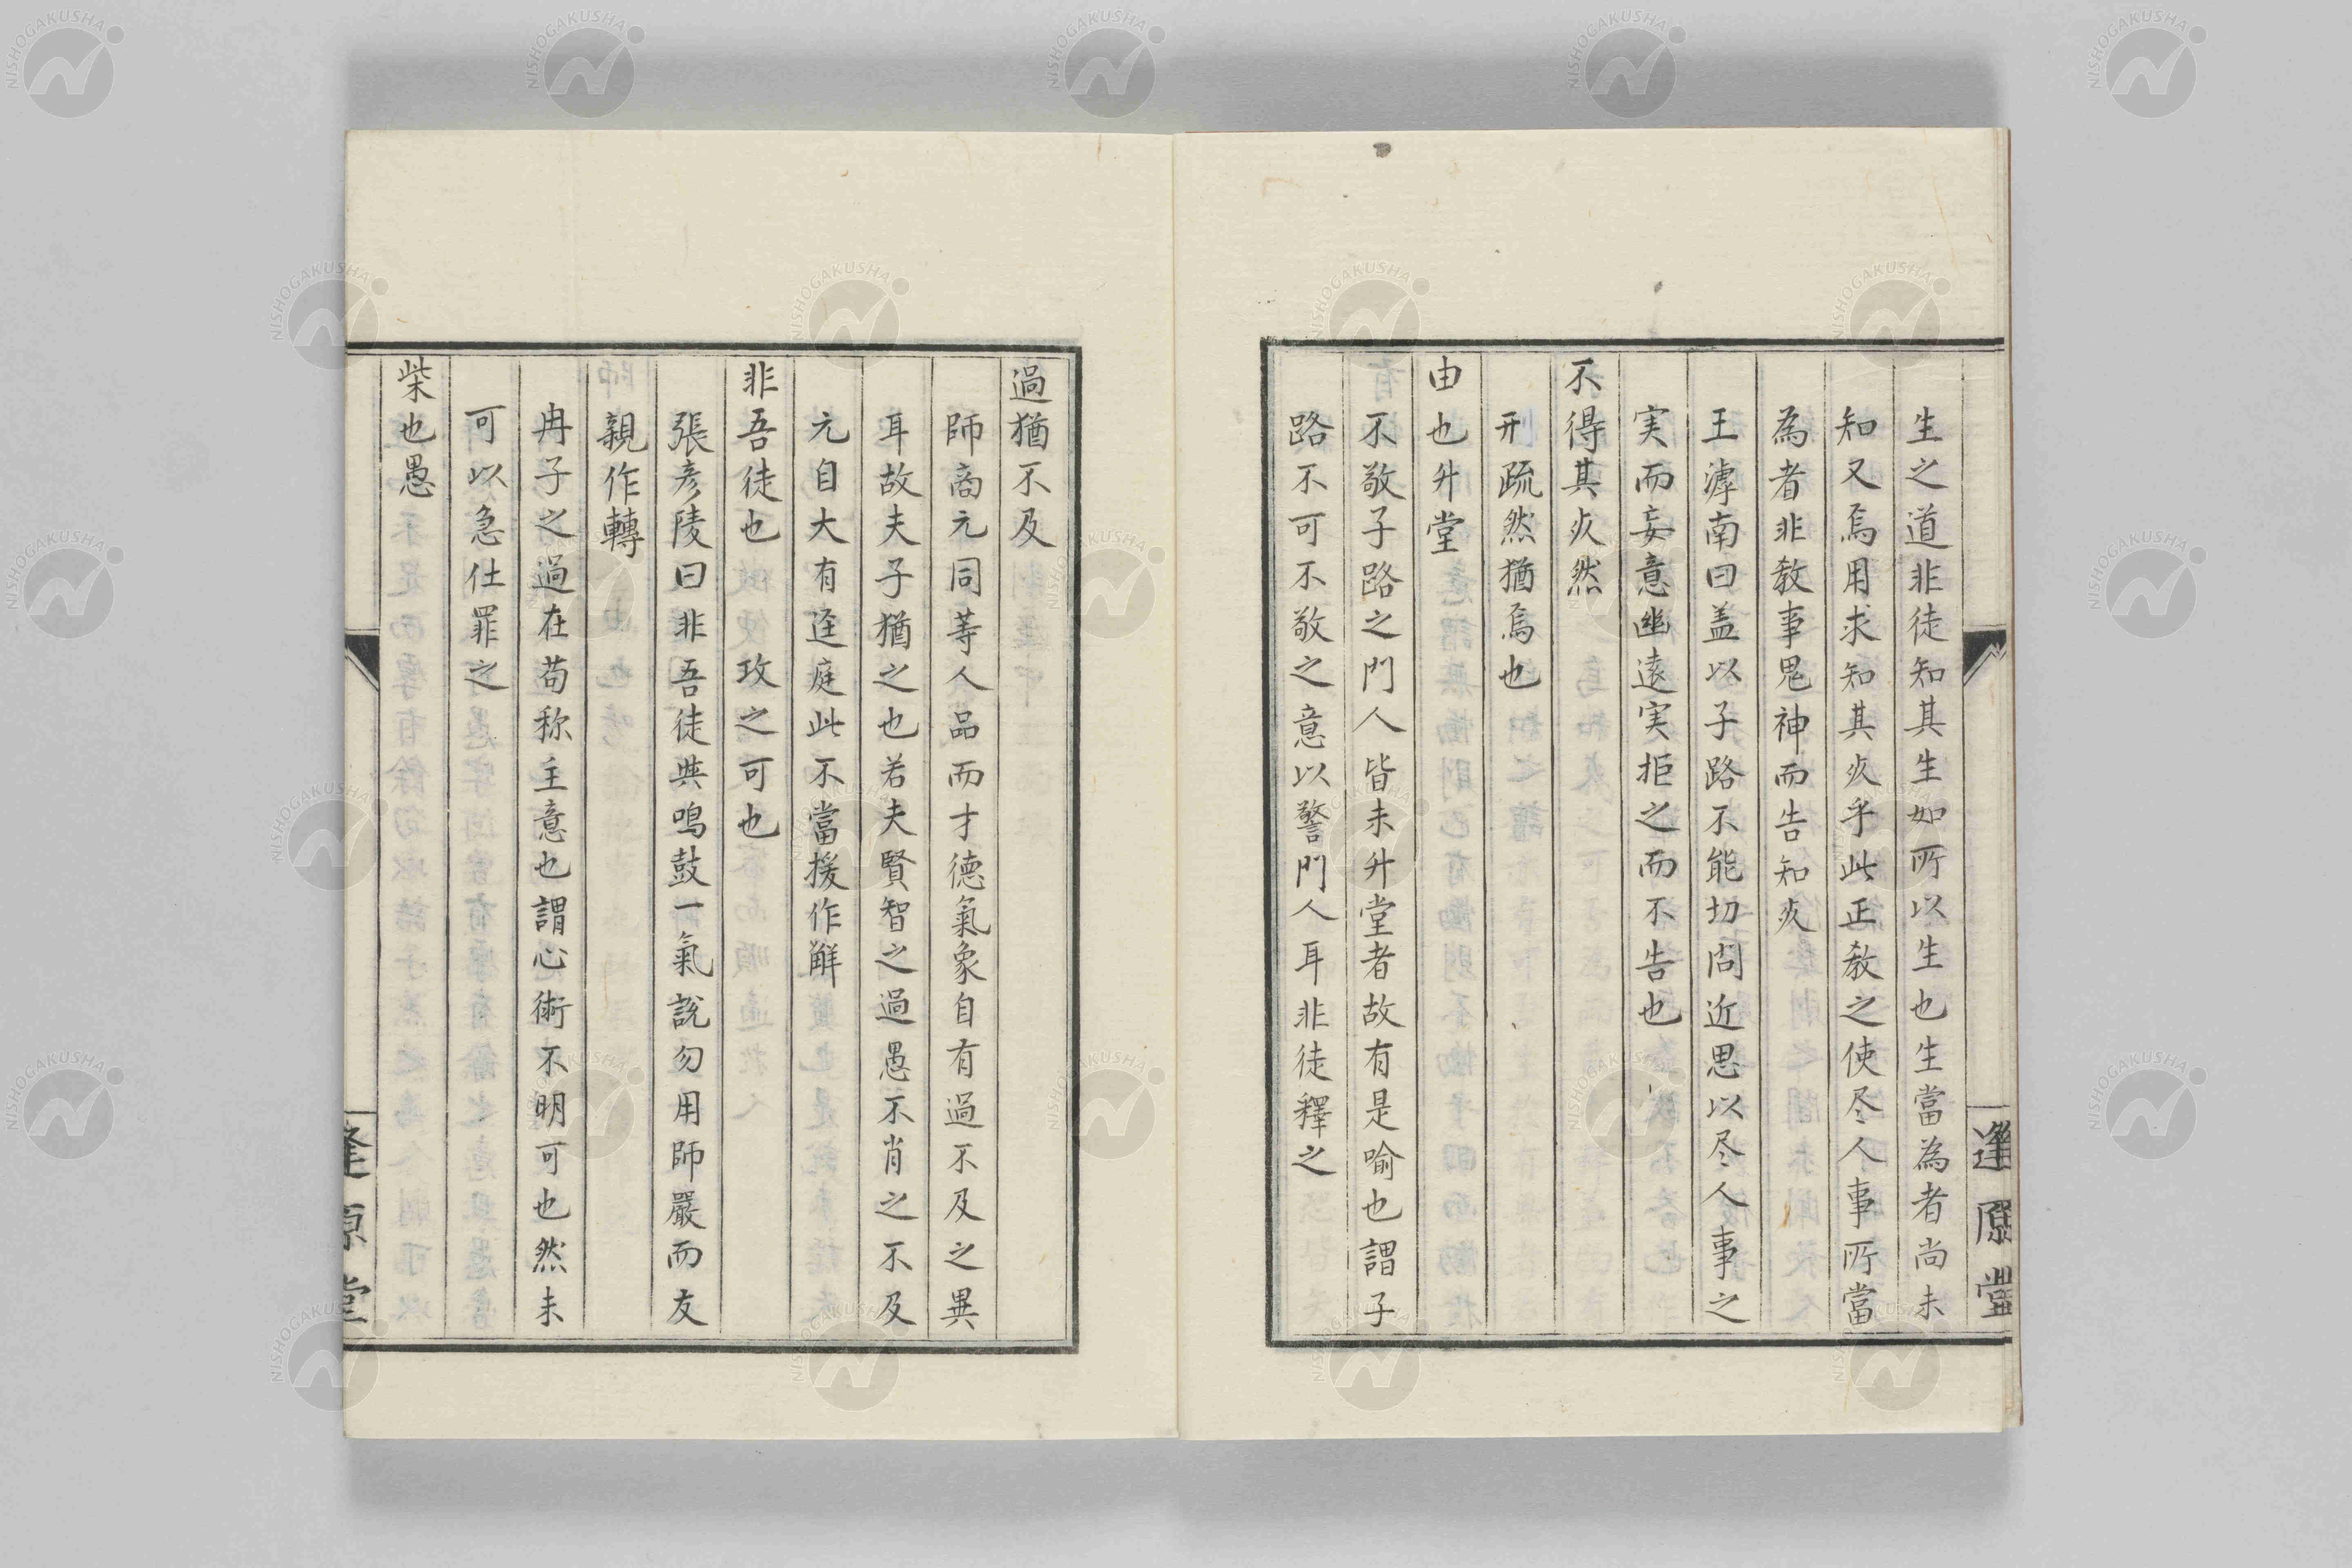 生之道非徒知其生生如所以生也生當為者尚未
知又焉用求知其死乎此正教之使尽人事所當
為者非教事鬼神而告知死
王滹南曰盖以子路不能切問近思以尽人事之
実而妄意幽遠実拒之而不告也
不得其死然
刑疏然猶焉也
由也升堂
不敬子路之門人皆未升堂者故有是喻也謂子
路不可不敬之意以警門人耳非徒釋之
逢原堂
過猶不及
師商元同等人品而才德氣象自有過不及之異
耳故夫子猶之也若夫賢智之過愚不肖之不及
元自大有逕庭此不當援作解
非吾徒也 攻之可也
張彦陵曰非吾徒與鳴鼓一氣説勿用師嚴而友
親作轉
冉子之過在苟称主意也謂心術不明可也然未
可以急仕罪之
柴也愚
逢原堂
NISHOGAKUSHA